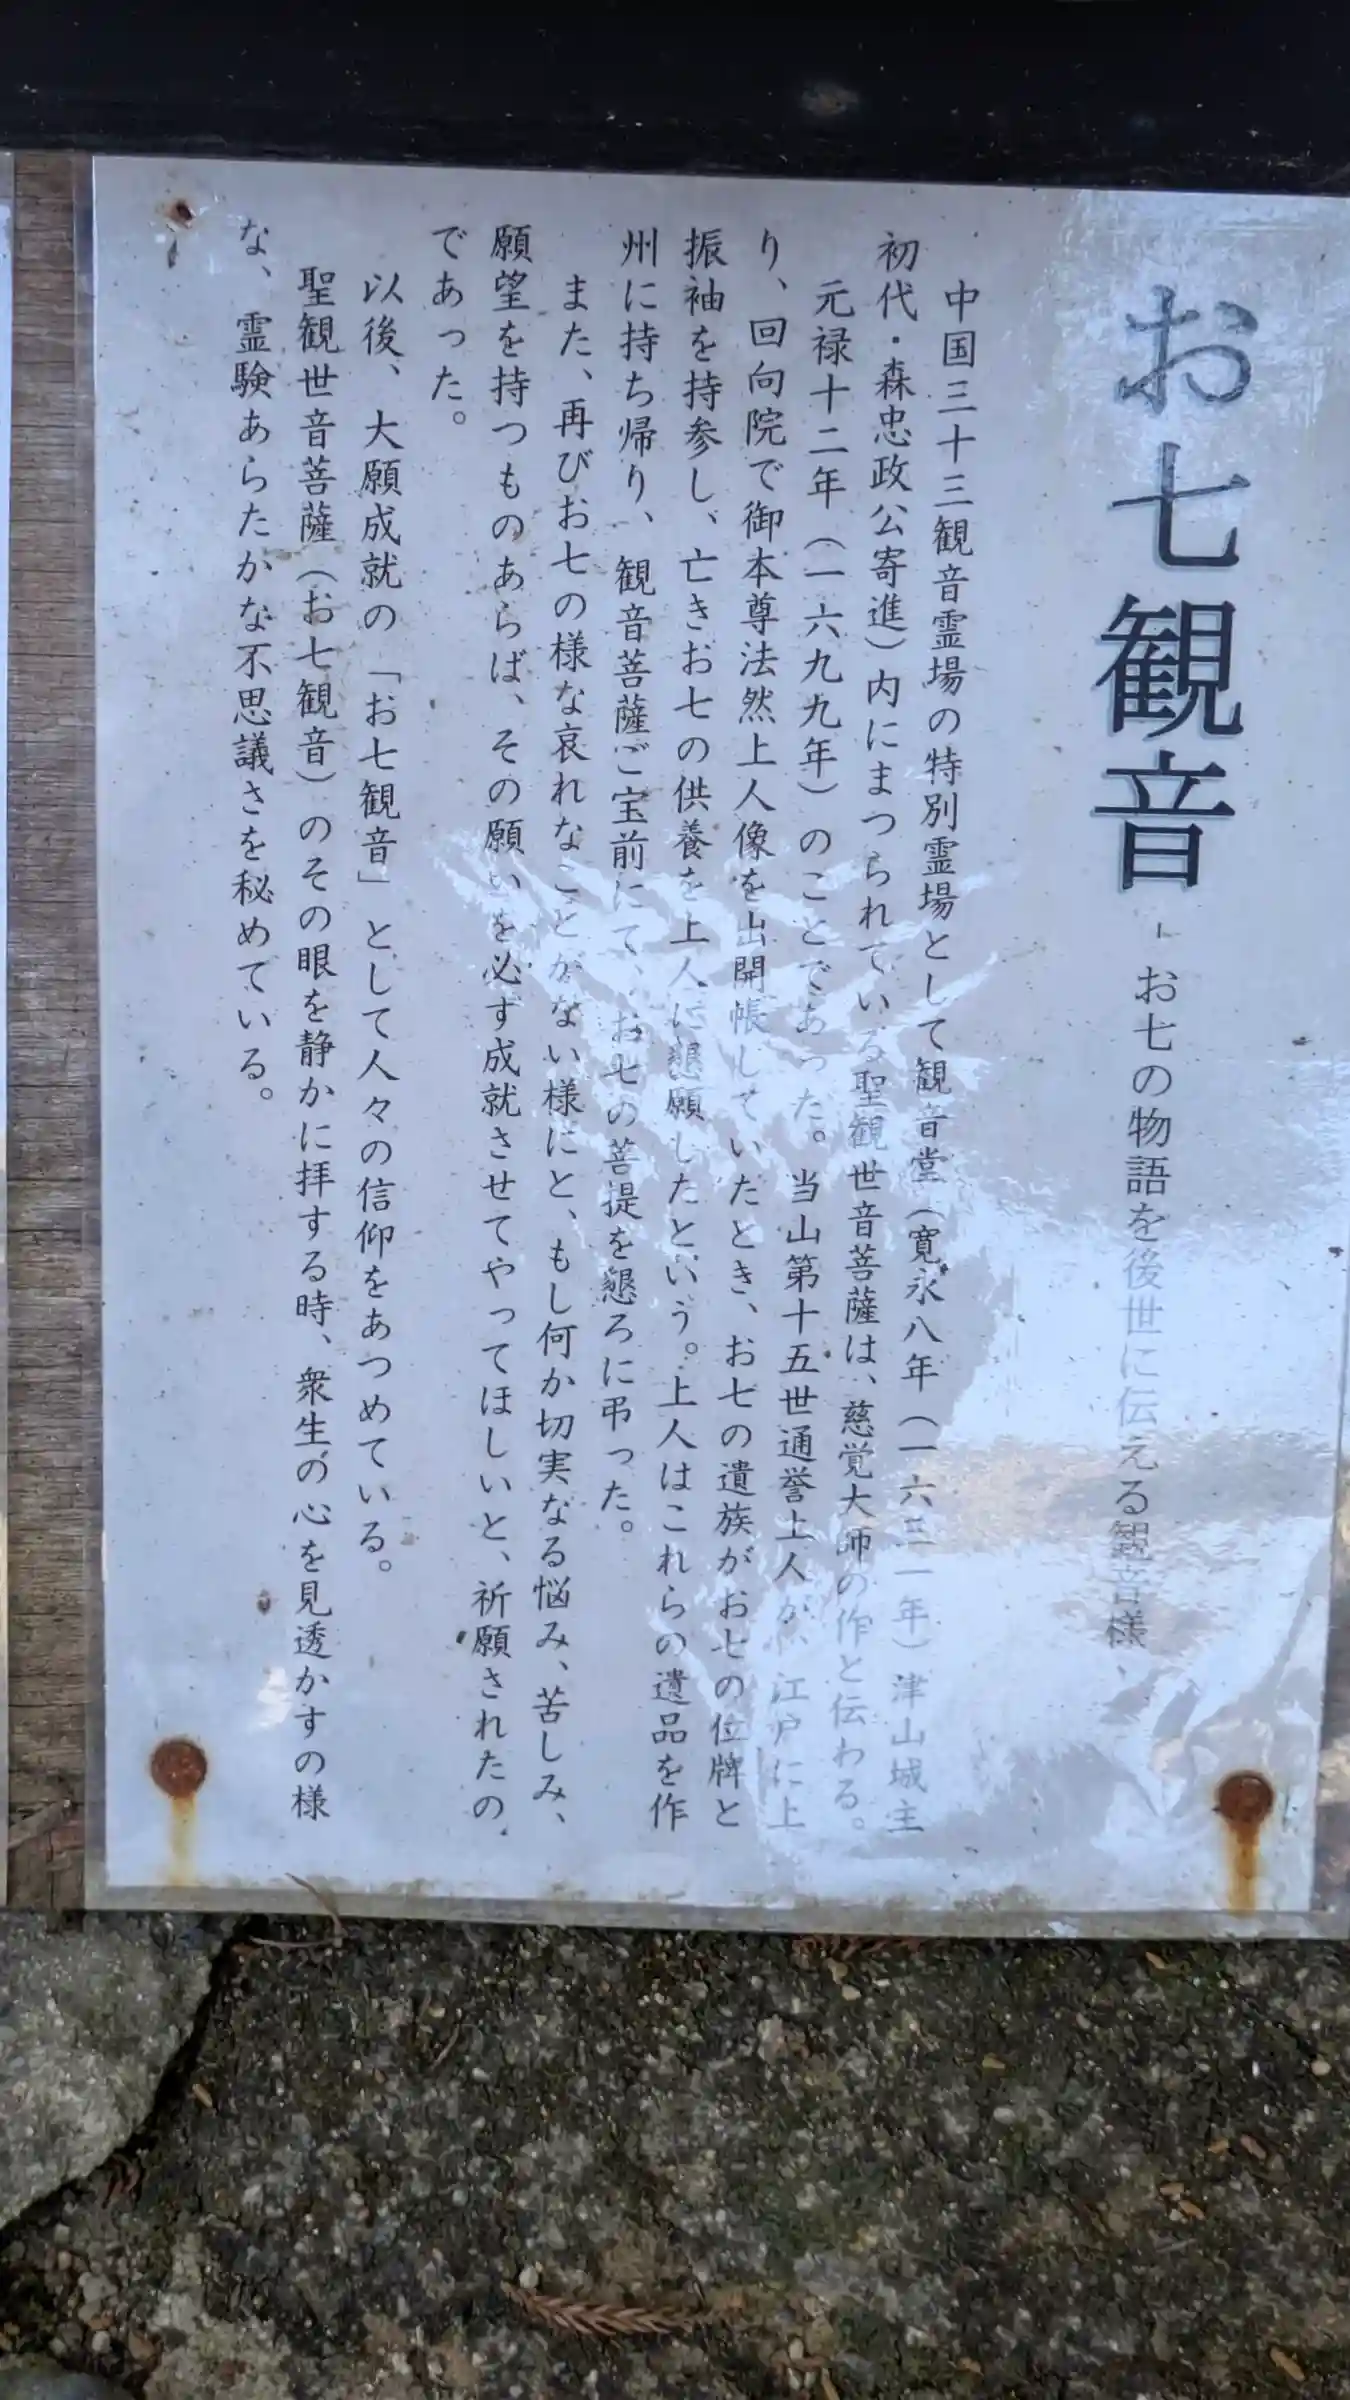 お七観音 - お七の物語を後世に伝える観音様 -
中国三十三観音霊場の特別霊場として観音堂（寛永八年（一六三一年）津山城主
初代・森忠政公寄進）内にまつられている聖観世音菩薩は、慈覚大師の作と伝わる。
元禄十二年（一六九九年）のことであった。当山第十五世通誉上人が、江戸に上
り、回向院で御本尊法然上人像を出開帳していたとき、お七の遺族がお七の位牌と
振袖を持参し、亡きお七の供養を上人に懇願したという。上人はこれらの遺品を作
州に持ち帰り、観音菩薩ご宝前にて、お七の菩提を懇ろに弔った。
また、再びお七の様な哀れなことがない様にと、もし何か切実なる悩み、苦しみ、
願望を持つものあらば、その願いを必ず成就させてやってほしいと、祈願されたの
であった。
以後、大願成就の「お七観音」として人々の信仰をあつめている。
聖観世音菩薩（お七観音）のその眼を静かに拝する時、衆生の心を見透かすの様
な、霊験あらたかな不思議さを秘めている。